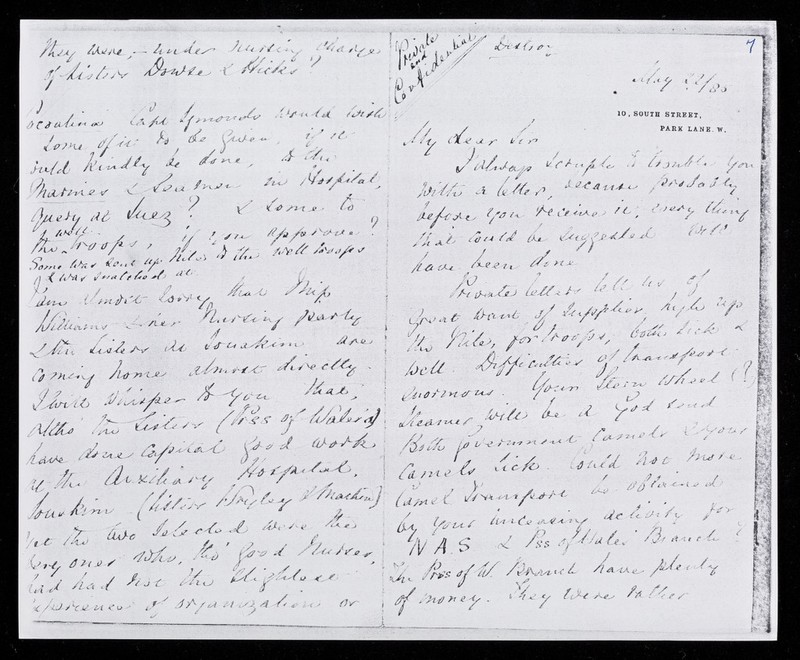 Private
and
Confidential
Destroy
7
May 22/85
10, SOUTH STREET,
PARK LANE. W.
My dear Sir
I always scruple to trouble you
with a letter, because probably,
before you receive it, every thing
that could be suggested will
have been done
Private letters tell us of
great want of Supplies, high up
the Nile, for troops, both sick &
well. Difficulties of transport
enormous. Your Stern wheel (?)
Steamer will be a God send
Both Government Camels & your
Camels sick. Could not more
Camel Transport be obtained
by your unceasing activity for
N A S & Pss of Wales' Branch?
The Prss of W. Branch have plenty
of money. They were rather
they were, - under nursing charge
of Sisters Dowse & Hicks
Capt Symonds would wish
some of it to be given, if it
could kindly be done, to the
Marines & Seamen in Hospital,
query at Suez? & some to
the well troops, if you approve?
Some was sent up Nile to the well troops
& was snatched at
I am almost sorry that Miss
Williams & her Nursing party
& the Sisters at Souakim are
coming home almost directly.
I will whisper to you that,
altho' the Sisters (Prss of Wales's)
have done capital good work
at the Auxiliary Hospital,
Souakim (Sisters &
yet the two selected were the
very ones who, tho' good Nurses,
had had not the slightest
experience of organization or